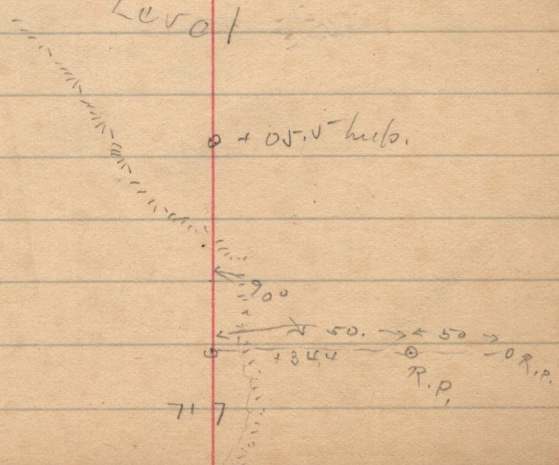 Level
+ 05.5 hub.
90°
50. 50
+34.4
R.p. R.p.
717